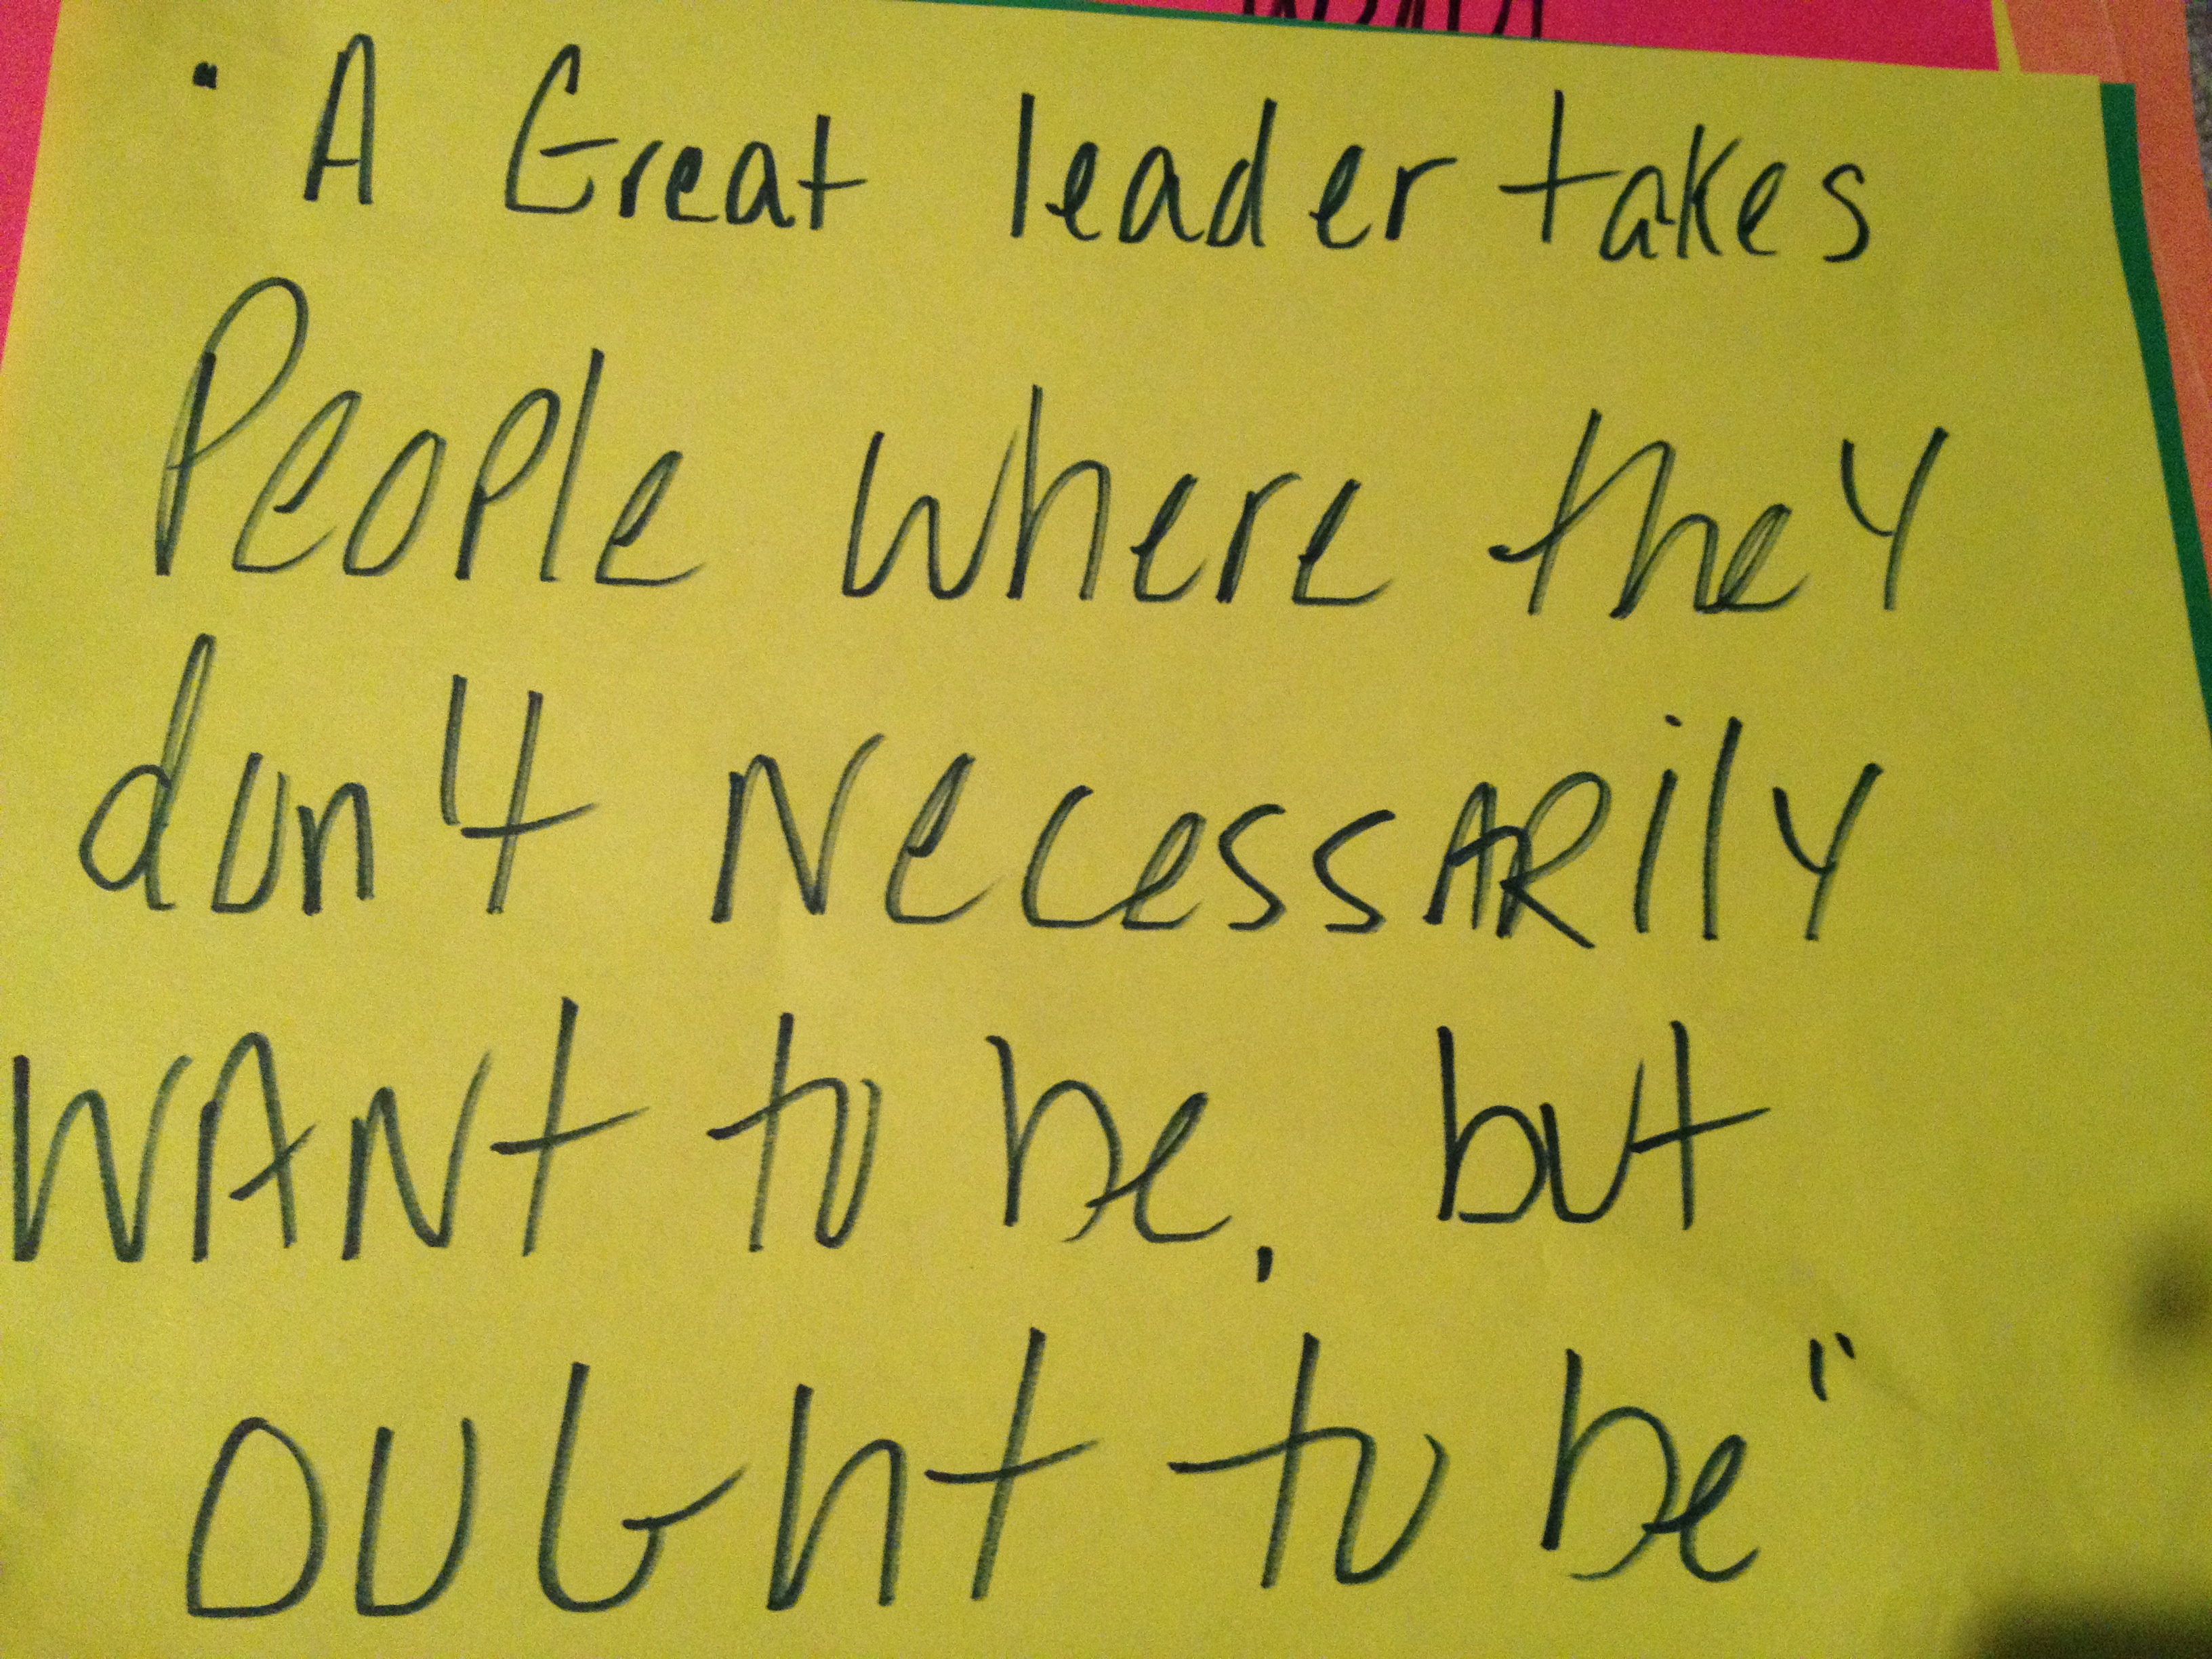 "A Great leader takes
People where they
don't NecessARily
WANt to be, but
OUGht to be"